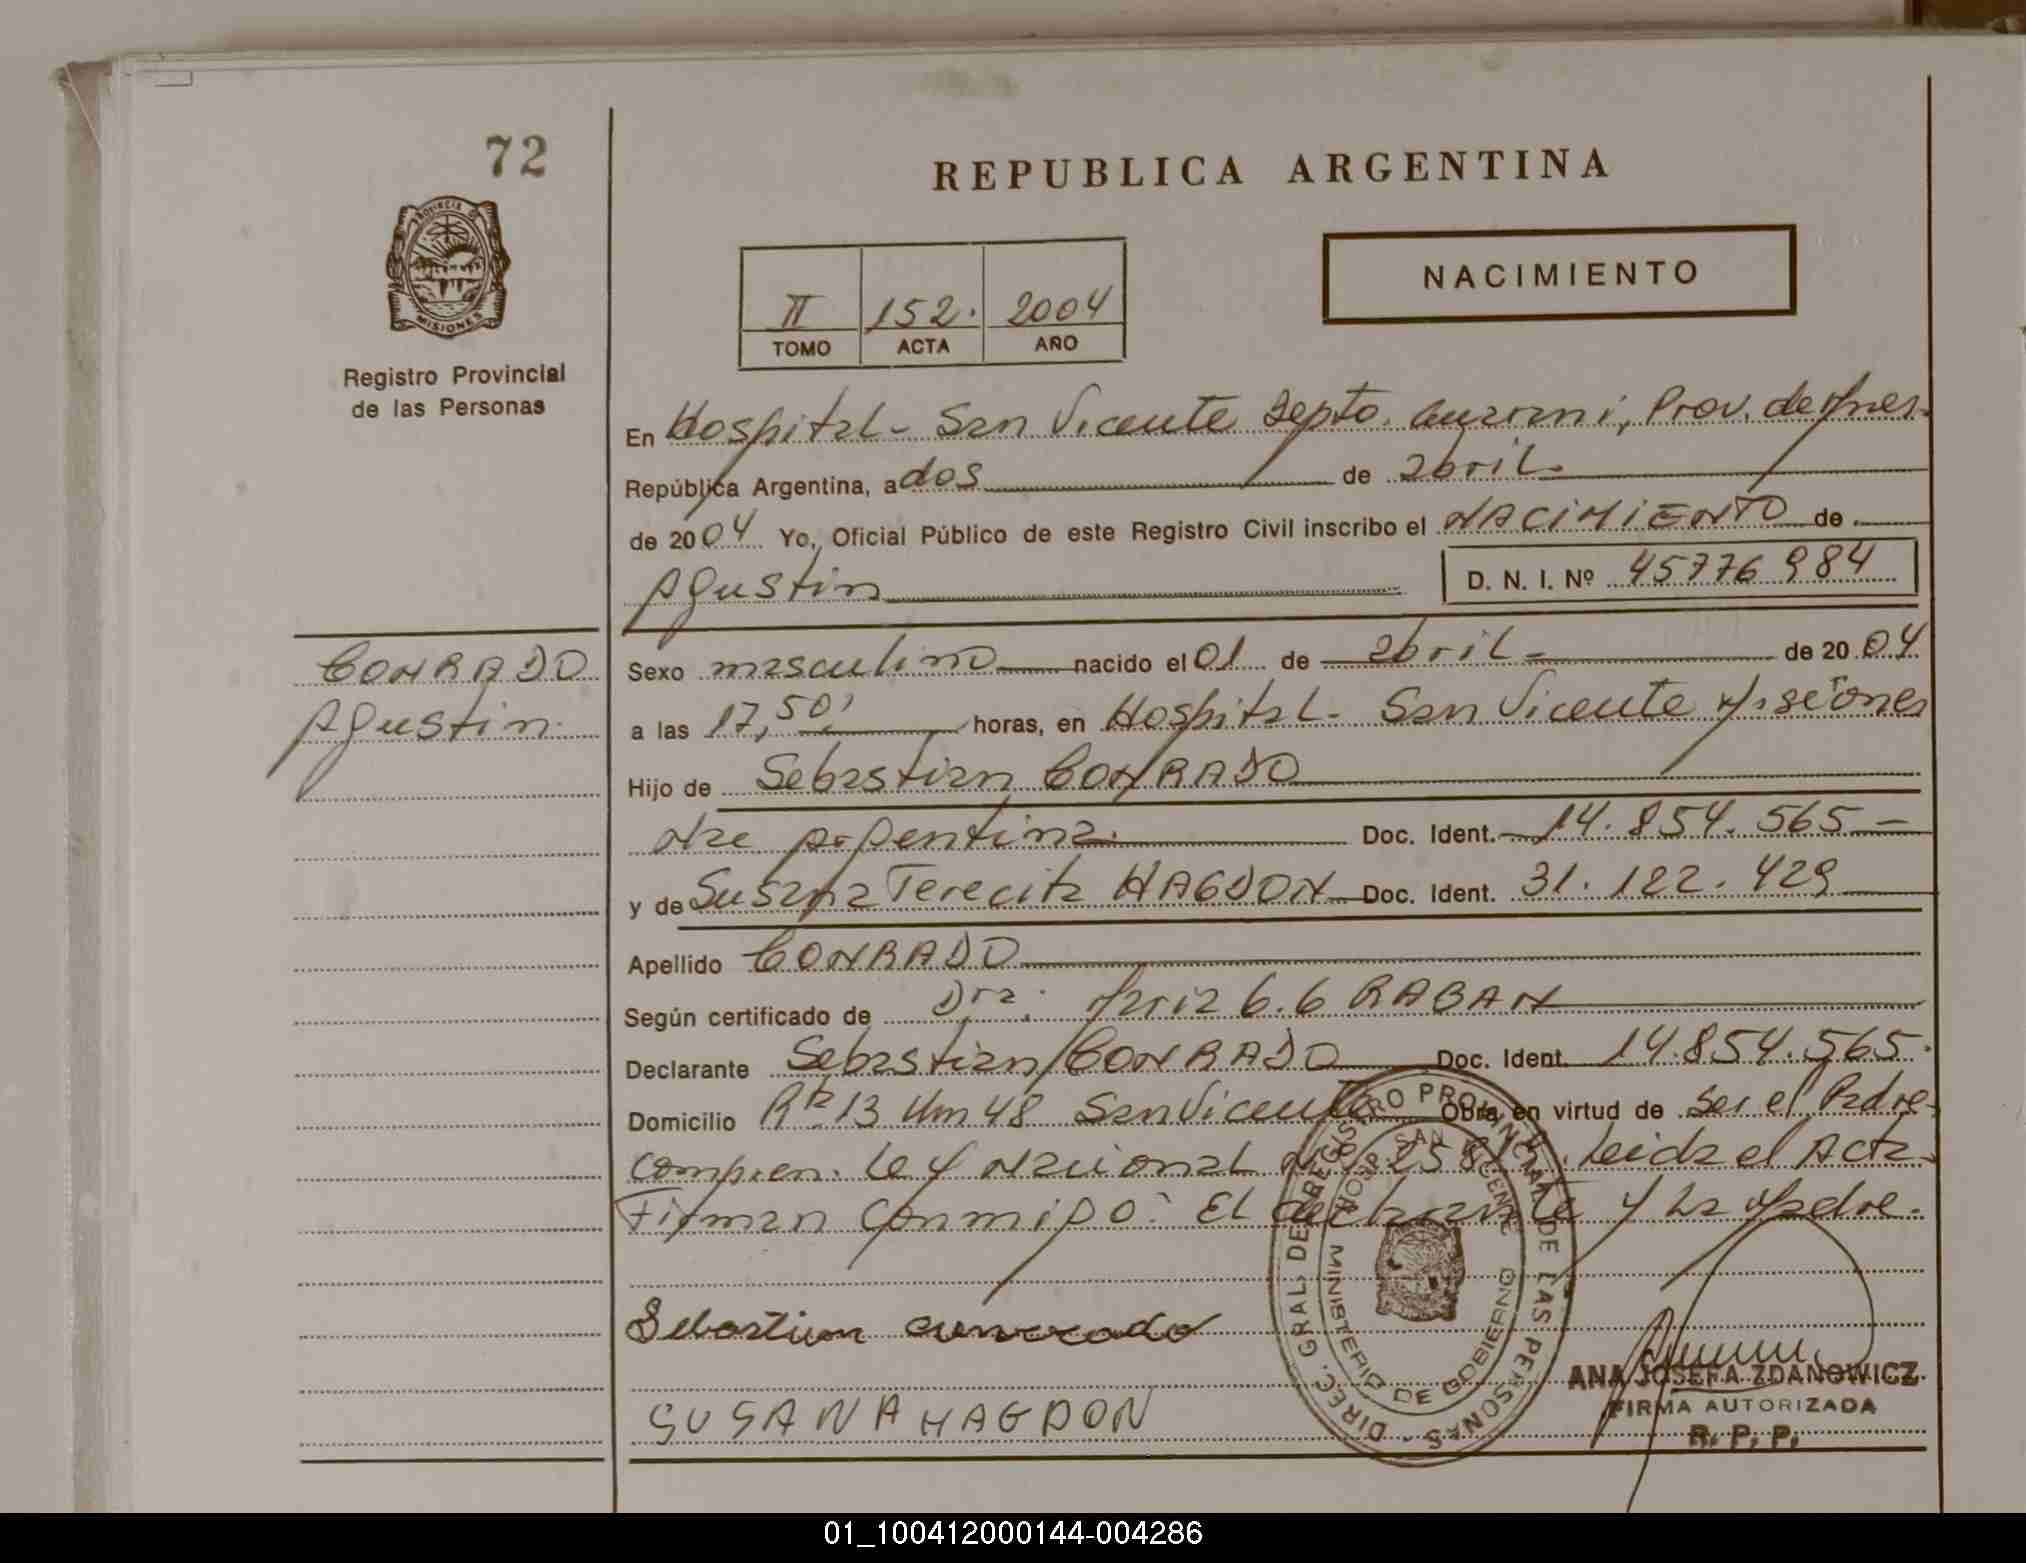 72
REPUBLICA ARGENTINA
PROVINCIA DE
MISIONES
Registro Provincial
de las Personas
NACIMIENTO
II 152. 2004
TOMO ACTA AÑO
En Hospital - San Vicente Depto. Guarani, Prov. de Mnes.
República Argentina, a dos de abril.
de 2004 Yo, Oficial Público de este Registro Civil inscribo el NACIMIENTO de
Agustin D. N. I. Nº 45776984
CONRADO
Agustin.
Sexo masculino nacido el 01 de abril - de 2004
a las 17,50' horas, en Hospital - San Vicente Misiones
Hijo de Sebastian CONRADO
Nac Argentina. Doc. Ident. 14.854.565 -
y de Susana Terecita HAGDON Doc. Ident. 31.122.429
Apellido CONRADO
Según certificado de Dra. Maria G.G RABAN
Declarante Sebastian CONRADO Doc. Ident. 14.854.565.
Domicilio Rta 13 Km 48 San Vicente Obra en virtud de Ser el Padre
Ley Nacional Leida el Acta
Firman Conmigo: El declarante y La Madre.
Sebastian
SUSANA HAGDON
DIREC. GRAL. DE REGISTRO PROVINCIAL DE LAS PERSONAS
HOSP. SAN VICENTE
MINISTERIO DE GOBIERNO
ANA JOSEFA ZDANOWICZ
FIRMA AUTORIZADA
R. P. P.
01_100412000144-004286